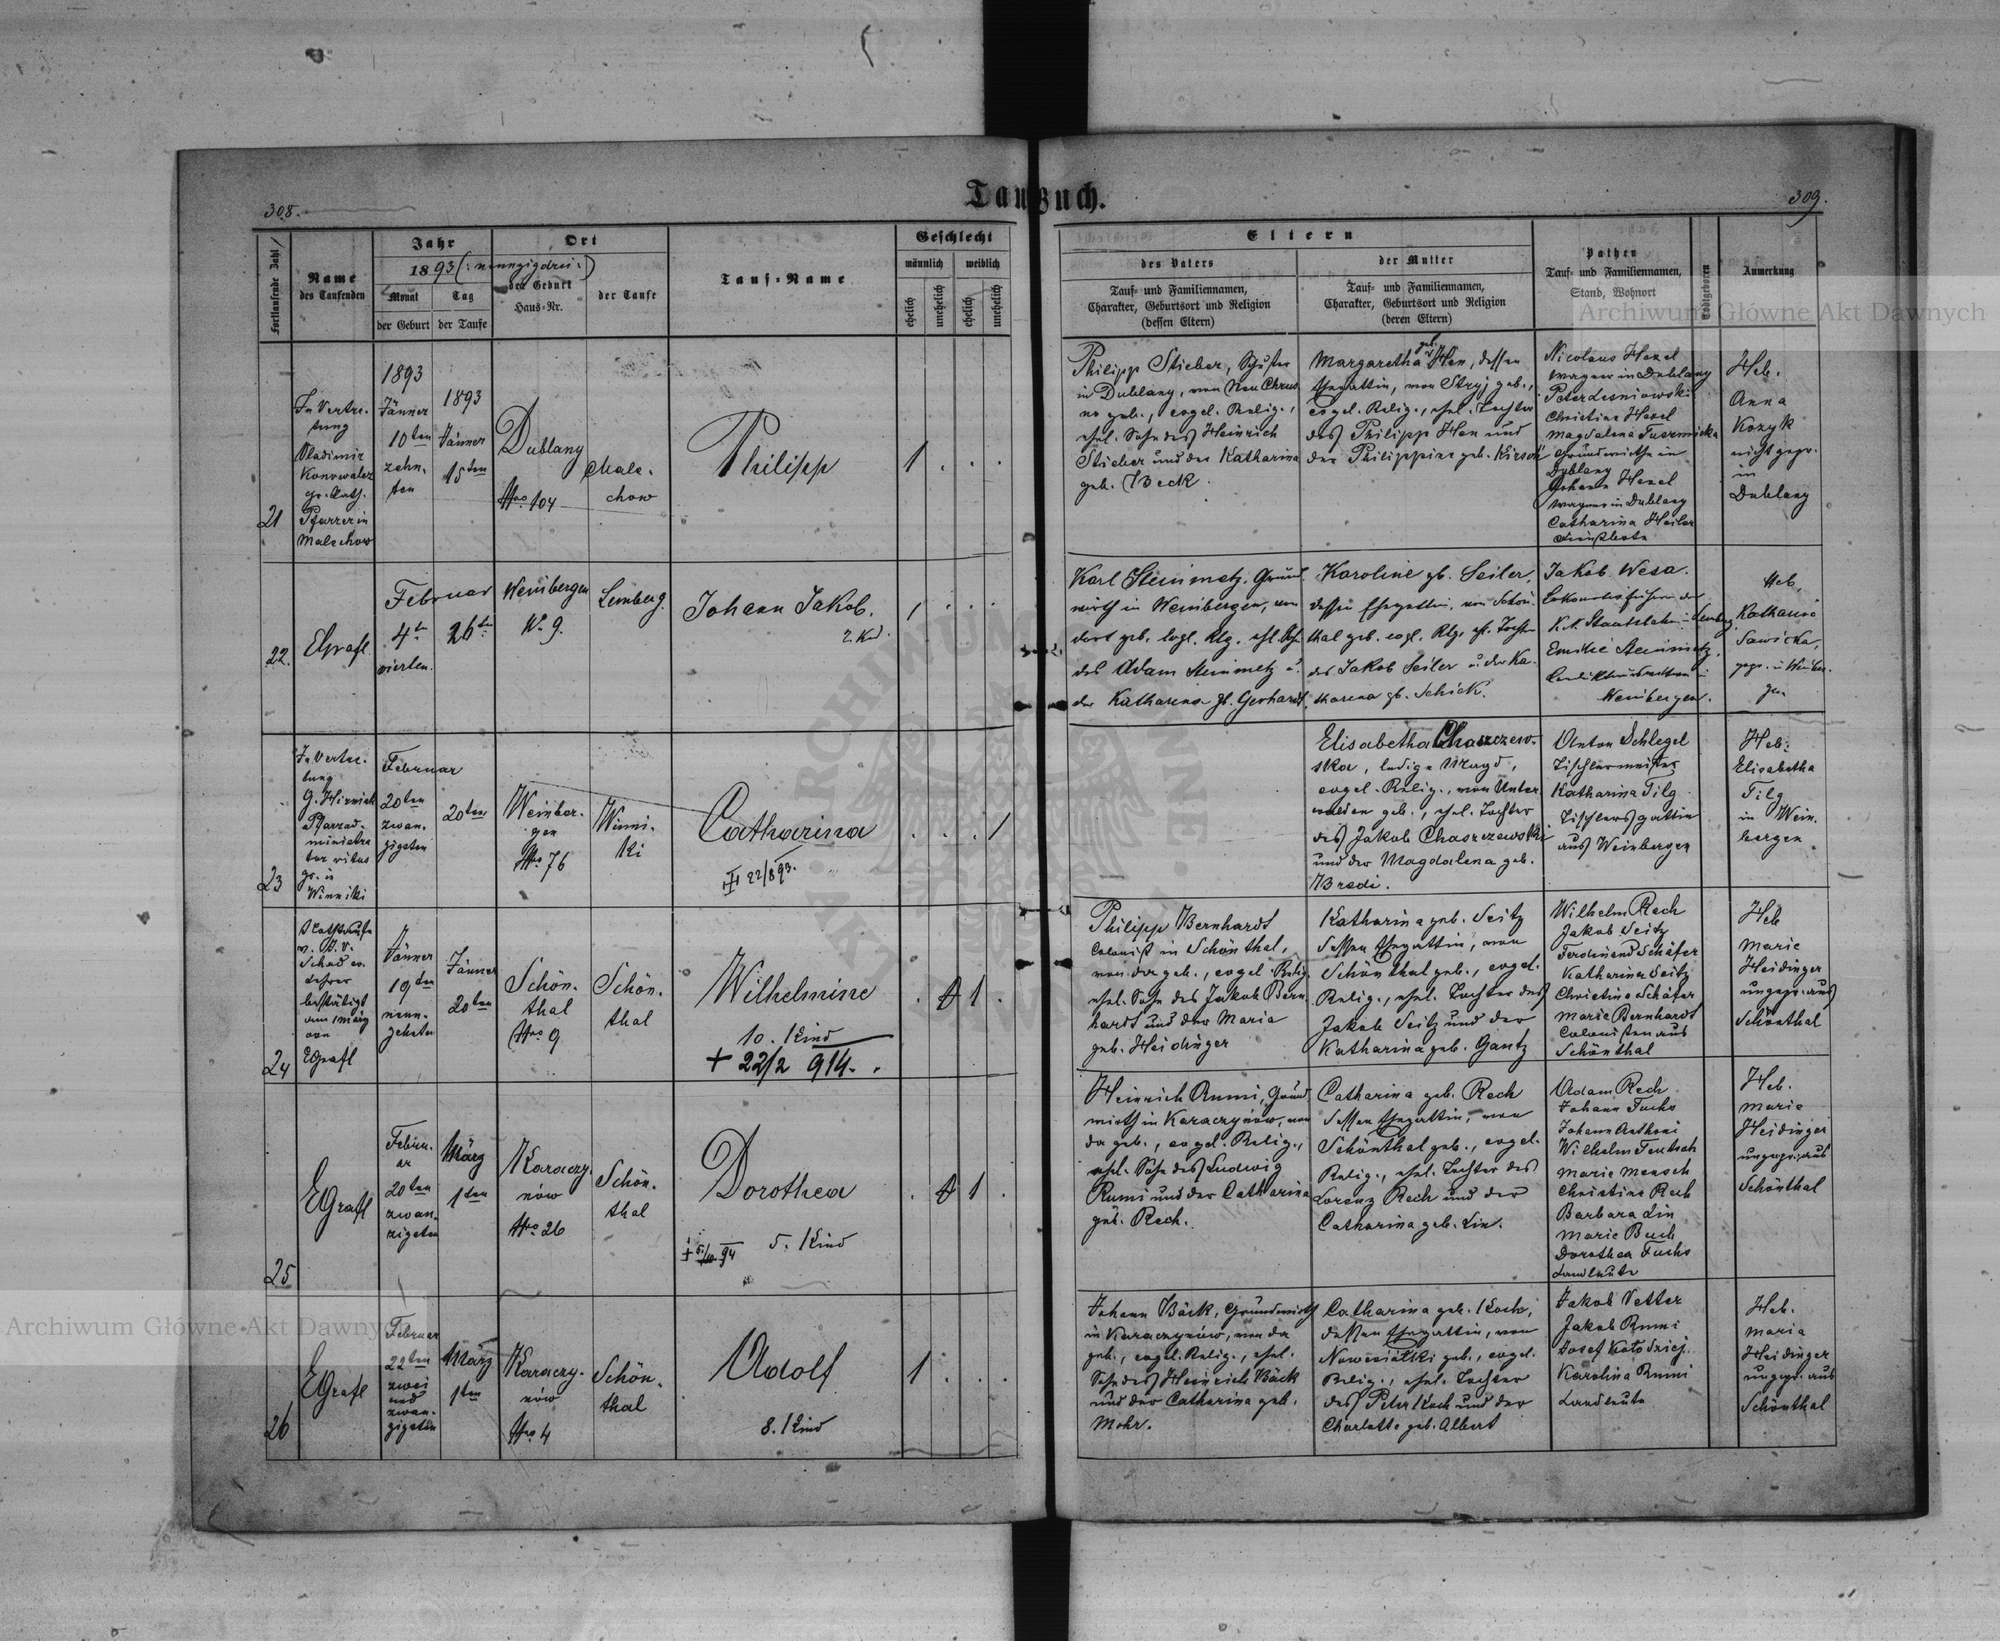 308.
Taufbuch.
309.
Fortlaufende Zahl
Name
des Taufenden
Jahr
1893 (: neunzigdrei :)
Monat
Tag
der Geburt
der Taufe
Ort
der Geburt
Haus-Nr.
der Taufe
Tauf-Name
Geschlecht
männlich
weiblich
ehelich
unehelich
ehelich
unehelich
Eltern
des Vaters
Tauf- und Familiennamen,
Charakter, Geburtsort und Religion
(dessen Eltern)
der Mutter
Tauf- und Familiennamen,
Charakter, Geburtsort und Religion
(deren Eltern)
Pathen
Tauf- und Familiennamen,
Stand, Wohnort
Todtgeboren
Anmerkung
Archiwum Główne Akt Dawnych
21
In Vertre-
tung
Vladimir
Konowalez
gr. Cath.
Pfarrer in
Malechow
1893
Jänner
10ten
zehn-
ten
1893
Jänner
15ten
Dublany
Nro 104
Male-
chow
Philipp
1
Philipp Stieber, Schuster
in Dublany, von Neu Chrus
no geb., evgel. Relig.,
ehel. Sohn des Heinrich
Stieber und der Katharina
geb. Beck.
Margaretha geb. Hen, dessen
Ehegattin, von Stryj geb.,
evgel. Relig., ehel. Tochter
des Philipp Hen und
der Philippine geb. Kirsch
Nicolaus Hexel
Wagner in Dublany
Peter Lesniowski
Christine Hexel
Magdalena
Grundwirthe in
Dublany
Johann Hexel
Wagner in Dublany
Catharina Heiler
Heb.
Anna
Kozyk
nicht gepr.
in
Dublany
22.
EGrafl
Februar
4ten
vierten.
26ten
Weinbergen
No 9.
Lemberg.
Johann Jakob.
2. Kd.
Karl Steinmetz. Grund
wirth in Weinbergen, von
dort geb. evgl. Rlg. ehl. Sohn
des Adam Steinmetz u.
der Katharina gb. Gerhardt.
Karoline gb. Seiler,
dessen Ehegattin, von Schön-
thal geb. evgl. Rlg. ehl. Tochter
des Jakob Seiler u. der Ka-
tharina gb. Schick.
Jakob Wesa.
Lokomotivführer der
K.K. Staatsbahn in Lemberg
Emilie Steinmetz,
Weinbergen.
Heb.
Katharina
Sawicka,
gepr. in Weinber-
gen
23
In Vertre-
tung
G. Hirniak
Pfarrad-
ministra
tor ritus
gr. in
Winniki
Februar
20ten
zwan-
zigsten
20ten
Weinber-
gen
Nro 76
Winni-
ki
Catharina
22/893.
1
Elisabetha Chaszczew-
ska, ledige Magd,
evgel. Relig., von Unter
walden geb., ehel. Tochter
des Jakob Chaszczewski
und der Magdalena geb.
Bredi.
Anton Schlegel
Tischlermeister
Katharina Tilg
Tischlersgattin
aus Weinbergen
Heb.
Elisabetha
Tilg
in Wein-
bergen.
24
Nothtaufe
Lehrer
bestätigt
am 1 März
von
EGrafl
Jänner
19ten
neun-
zehnten
Jänner
20ten
Schön-
thal
Nro 9
Schön-
thal
Wilhelmine
10. Kind
+ 22/2 914.
1
Philipp Bernhardt
Colonist in Schönthal,
von da geb., evgel. Relig.
ehel. Sohn des Jakob Bern-
hardt und der Maria
geb. Heidinger
Katharina geb. Seitz
dessen Ehegattin, von
Schönthal geb., evgel.
Relig., ehel. Tochter des
Jakob Seitz und der
Katharina geb. Gantz
Wilhelm Rech
Jakob Seitz
Ferdinand Schäfer
Katharina Seitz
Christine Schäfer
Marie Bernhardt
Colonisten aus
Schönthal
Heb
Marie
Heidinger
ungepr. aus
Schönthal
25
EGrafl
Februar
20ten
zwan-
zigsten
März
1ten
Karaczy-
nów
Nro 26
Schön-
thal
Dorothea
5. Kind
94
1
Heinrich Rumi, Grund
wirth in Karaczynów, von
da geb., evgel. Relig.,
ehel. Sohn des Ludwig
Rumi und der Catharina
geb. Rech.
Catharina geb. Rech
dessen Ehegattin, von
Schönthal geb., evgel.
Relig., ehel. Tochter des
Lorenz Rech und der
Catharina geb. Lin.
Adam Rech
Johann Fuchs
Johann Anthoni
Wilhelm Feutsch
Marie Mensch
Christine Rech
Barbara Lin
Marie Buch
Dorothea Fuchs
Landleute
Heb.
Marie
Heidinger
ungepr. aus
Schönthal
26
EGrafl
Februar
22ten
zwei
und
zwan-
zigsten
März
1ten
Karaczy-
nów
Nro 4
Schön-
thal
Adolf
8. Kind
1
Johann Bäck, Grundwirth
in Karaczynów, von da
geb., evgel. Relig., ehel.
Sohn des Heinrich Bäck
und der Catharina geb.
Mohr.
Catharina geb. Koch,
dessen Ehegattin, von
Nowesiolki geb., evgel.
Relig., ehel. Tochter
des Peter Koch und der
Charlotte geb. Albert
Jakob Vetter
Jakob Rumi
Josef Kołodziej
Karolina Rumi
Landleute
Heb.
Maria
Heidinger
ungepr. aus
Schönthal
Archiwum Główne Akt Dawnych